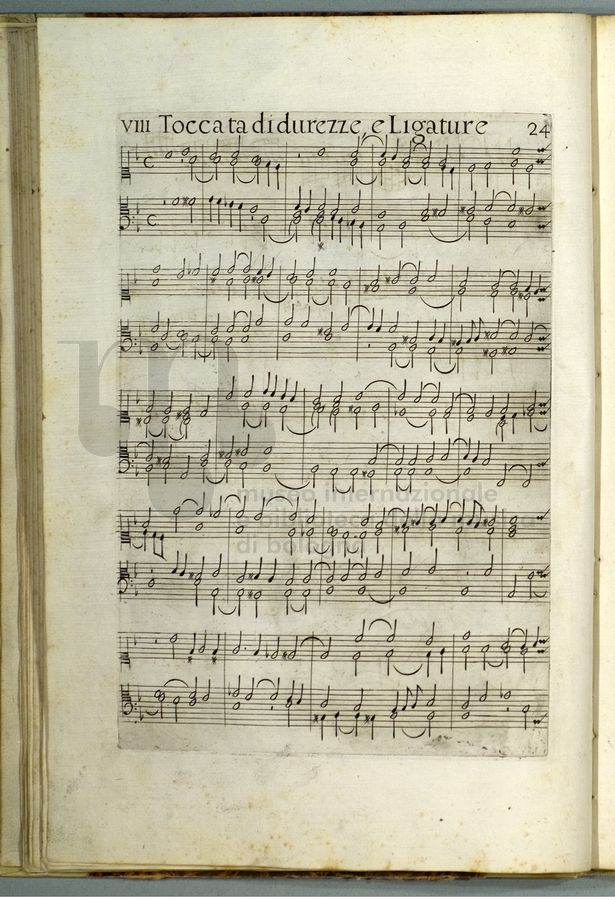 VIII Toccata di durezze, e Ligature 24
museo internazionale
e biblioteca della musica
di bologna